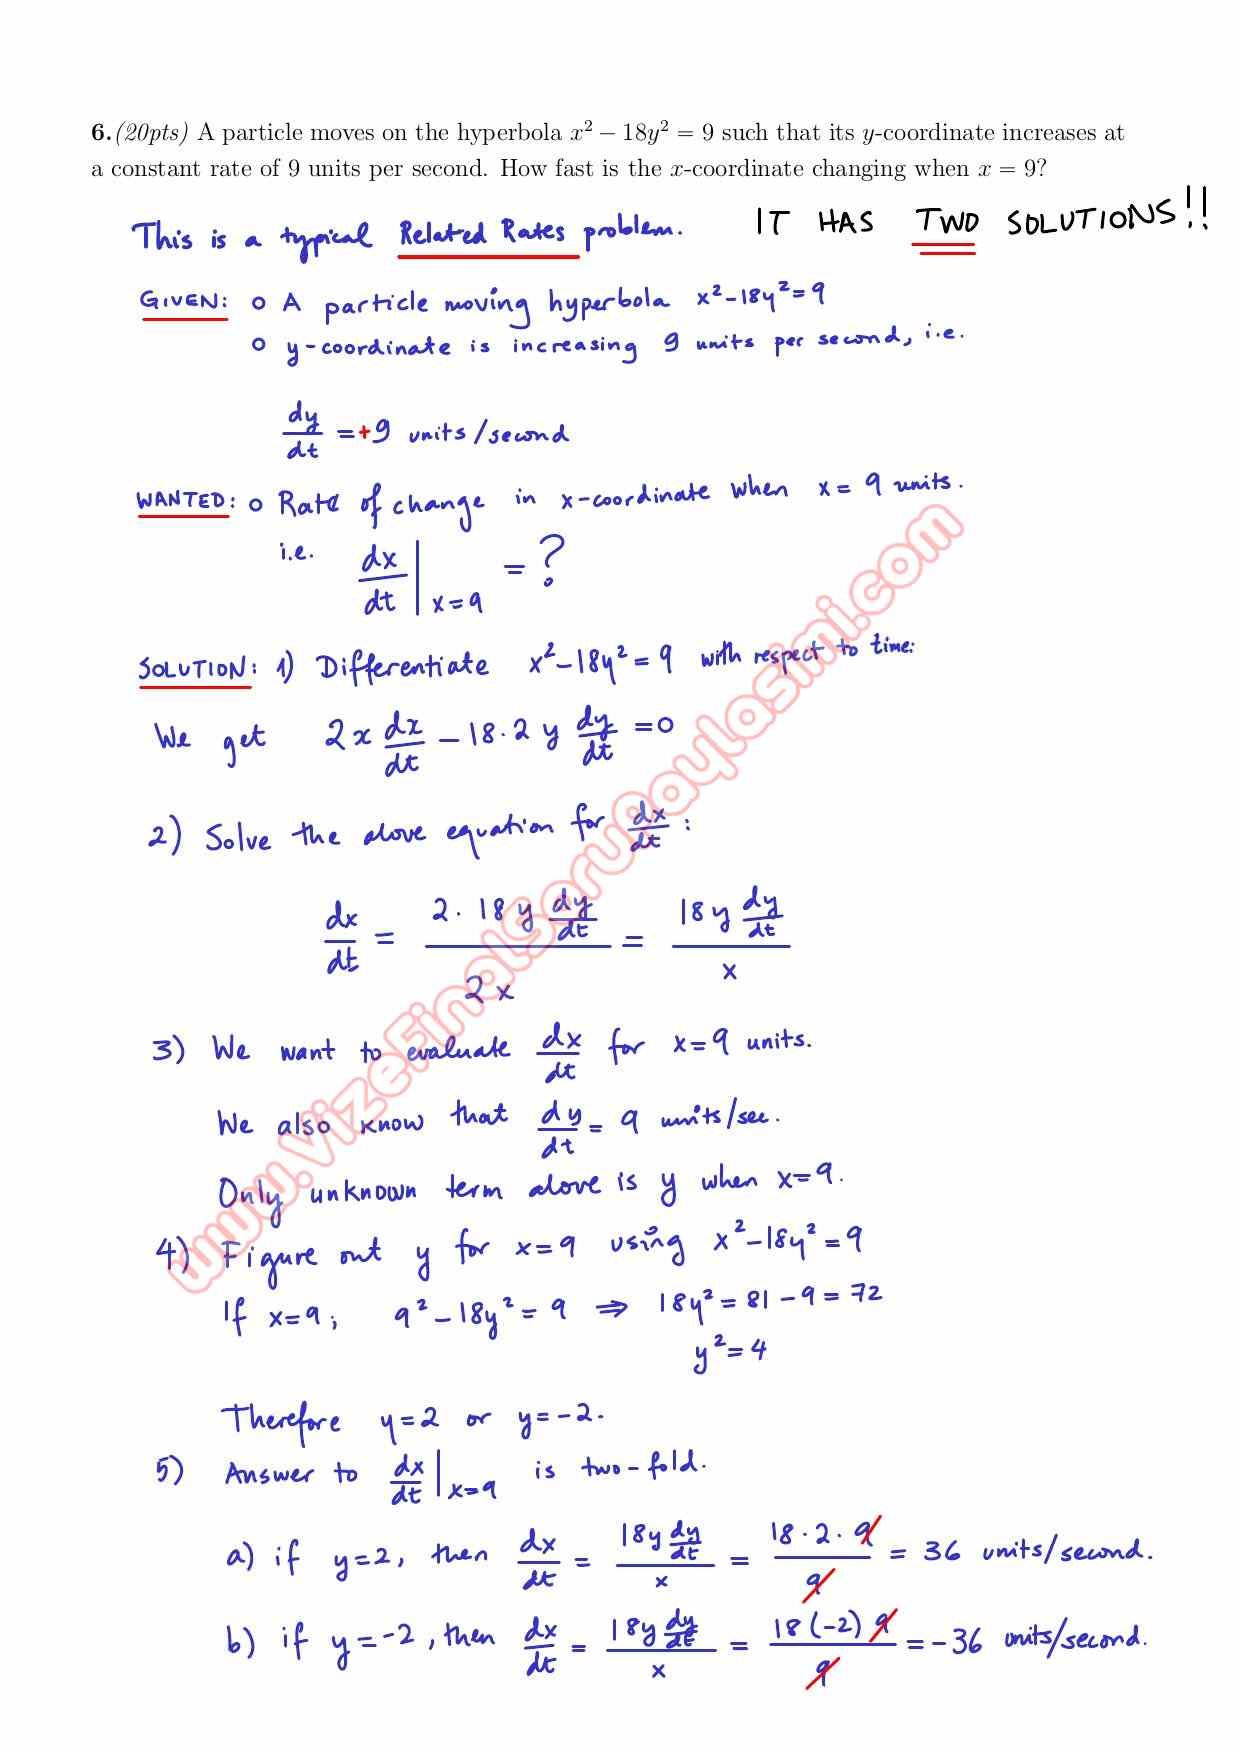 6.(20pts) A particle moves on the hyperbola x² − 18y² = 9 such that its y-coordinate increases at
a constant rate of 9 units per second. How fast is the x-coordinate changing when x = 9?
This is a typical Related Rates problem. IT HAS TWO SOLUTIONS!!
GIVEN: o A particle moving hyperbola x²-18y²=9
o y-coordinate is increasing 9 units per second, i.e.
dy/dt = +9 units/second
WANTED: o Rate of change in x-coordinate when x = 9 units.
i.e. dx/dt | x=9 = ?
SOLUTION: 1) Differentiate x²-18y² = 9 with respect to time:
We get 2x dx/dt - 18.2 y dy/dt = 0
2) Solve the above equation for dx/dt :
dx/dt = (2. 18 y dy/dt)/(2x) = (18 y dy/dt)/x
3) We want to evaluate dx/dt for x=9 units.
We also know that dy/dt = 9 units/sec.
Only unknown term above is y when x=9.
4) Figure out y for x=9 using x²-18y² = 9
If x=9; 9²-18y² = 9 ⇒ 18y² = 81-9 = 72
y² = 4
Therefore y=2 or y=-2.
5) Answer to dx/dt | x=9 is two-fold.
a) if y=2, then dx/dt = (18y dy/dt)/x = (18·2·9)/9 = 36 units/second.
b) if y=-2, then dx/dt = (18y dy/dt)/x = (18(-2)9)/9 = -36 units/second.
www.VizeFinalSoruPaylasimi.com